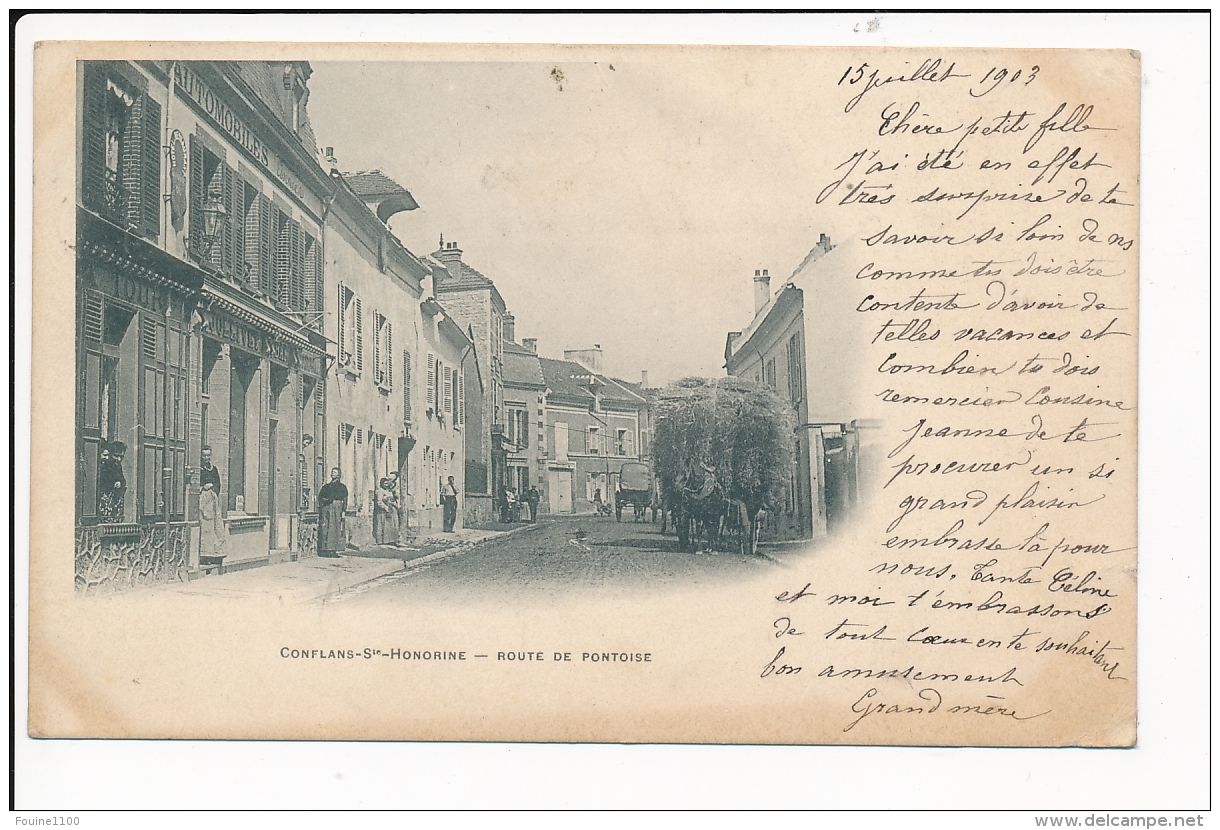 AUTOMOBILES
TOUR
JOLIVET
CONFLANS-Ste-HONORINE — ROUTE DE PONTOISE
15 juillet 1903
Chère petite fille
J'ai été en effet
très surprise de te
savoir si loin de ns
comme tu dois être
contente d'avoir de
telles vacances et
Combien tu dois
remercier Cousine
Jeanne de te
procurer un si
grand plaisir
embrasse la pour
nous. Tante Céline
et moi t'embrassons
de tout coeur en te souhaitant
bon amusement
Grand mère
Fouine1100
www.delcampe.net